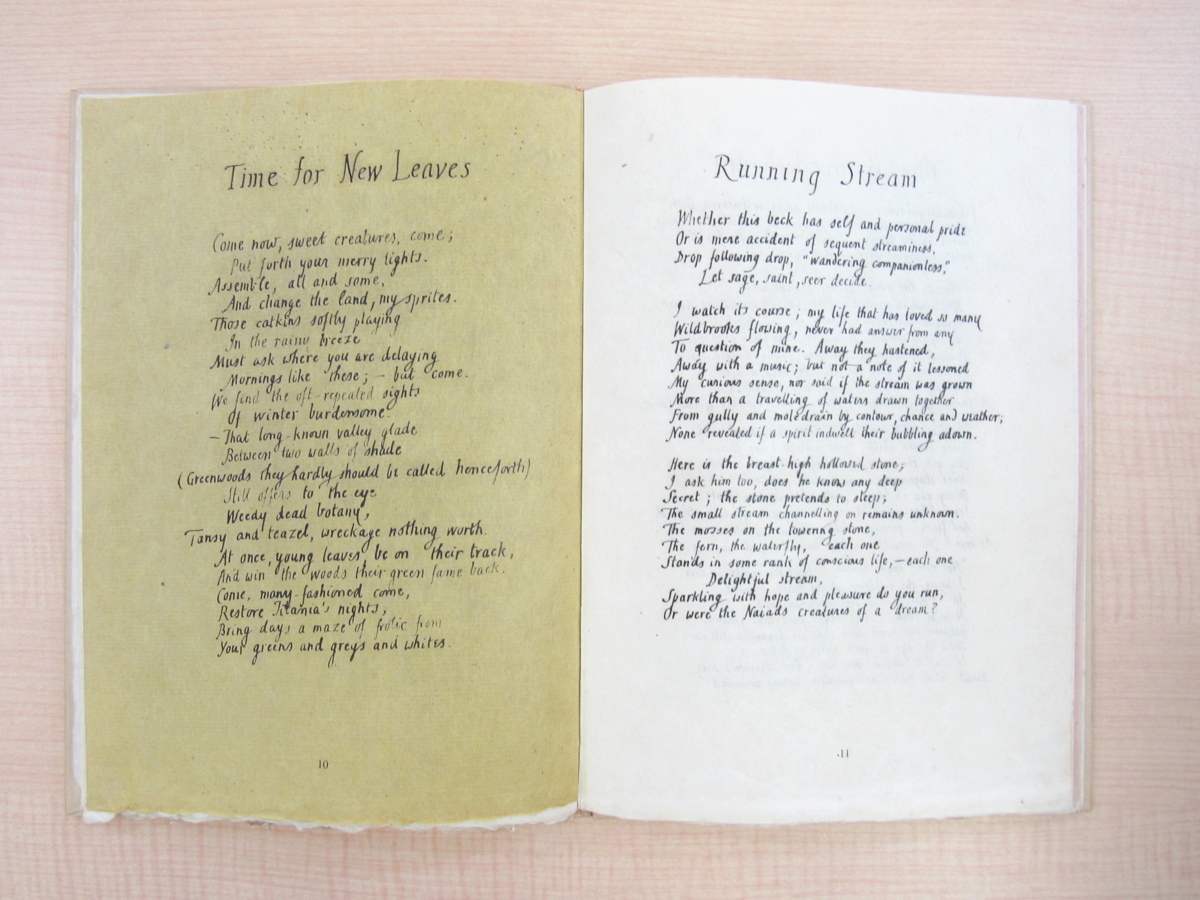 Time for New Leaves
Come now, sweet creatures, come;
Put forth your merry lights.
Assemble, all and some,
And change the land, my sprites.
Those catkins softly playing
In the rainy breeze
Must ask where you are delaying
Mornings like these; — but come.
We find the oft-repeated sights
Of winter burdensome.
— That long-known valley glade
Between two walls of shade
(Greenwoods they hardly should be called henceforth)
Still offers to the eye
Weedy dead botany,
Tansy and teazel, wreckage nothing worth.
At once, young leaves, be on their track,
And win the woods their green fame back.
Come, many-fashioned come,
Restore Titania's nights,
Bring days a maze of frolic from
Your greens and greys and whites.
10
Running Stream
Whether this beck has self and personal pride
Or is mere accident of sequent streaminess,
Drop following drop, "wandering companionless,"
Let sage, saint, seer decide.
I watch its course; my life that has loved so many
Wildbrooks flowing, never had answer from any
To question of mine. Away they hastened,
Away with a music; but not a note of it lessoned
My curious sense, nor said if the stream was grown
More than a travelling of waters drawn together
From gully and moledrain by contour, chance and weather;
None revealed if a spirit indwelt their bubbling adown.
Here is the breast-high hollowed stone;
I ask him too, does he know any deep
Secret; the stone pretends to sleep;
The small stream channelling on remains unknown.
The mosses on the towering stone,
The fern, the waterfly, each one
Stands in some rank of conscious life, — each one
Delightful stream,
Sparkling with hope and pleasure do you run,
Or were the Naiads creatures of a dream?
11